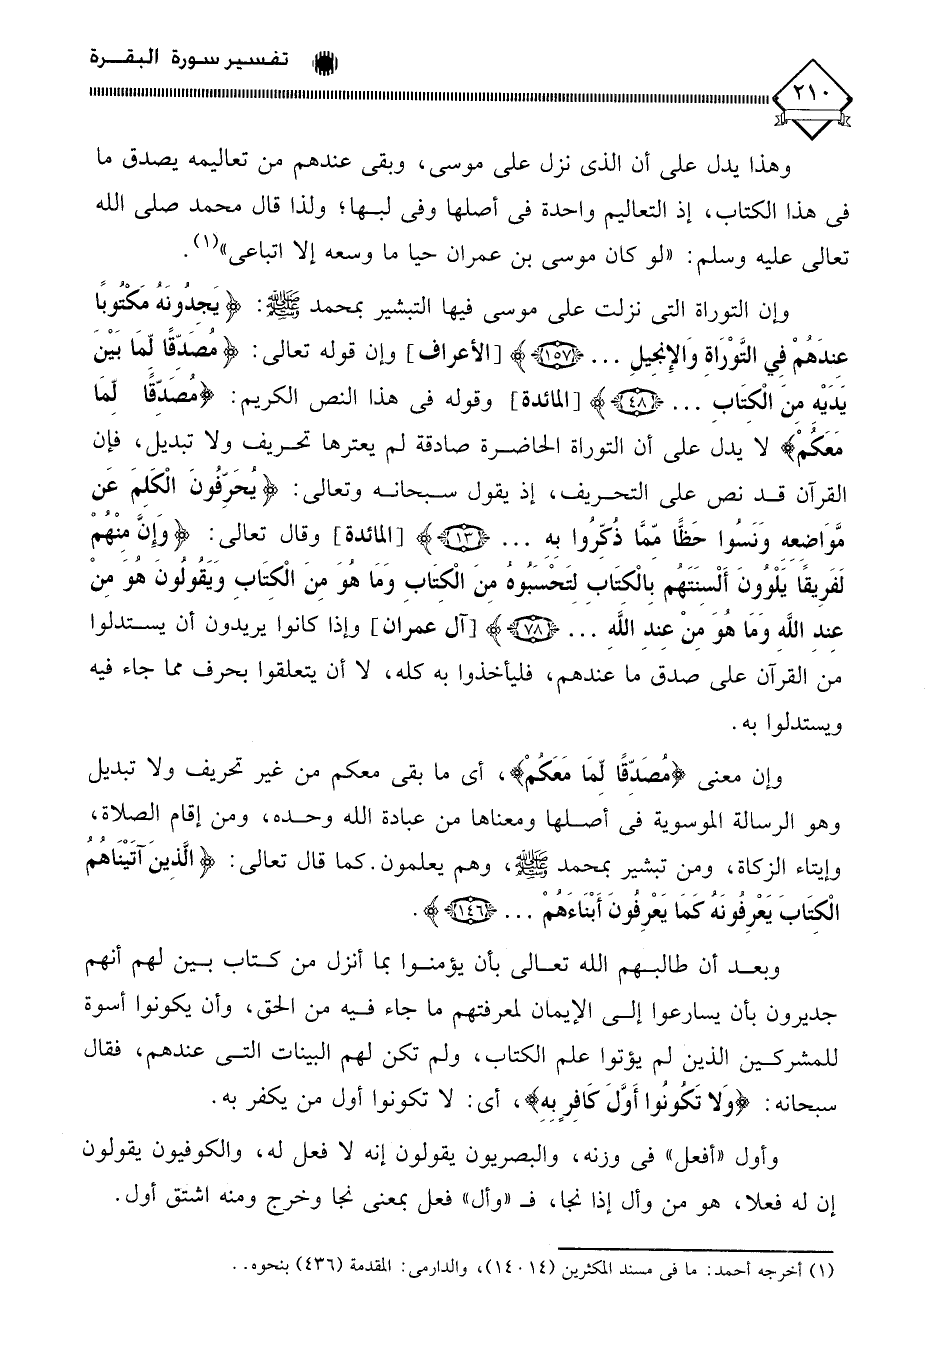 تفسير سورة البقرة
٢١٠
وهذا يدل على أن الذى نزل على موسى، وبقى عندهم من تعاليمه يصدق ما
فى هذا الكتاب، إذ التعاليم واحدة فى أصلها وفى لبها؛ ولذا قال محمد صلى الله
تعالى عليه وسلم: «لو كان موسى بن عمران حيا ما وسعه إلا اتباعى»(١).
وإن التوراة التى نزلت على موسى فيها التبشير بمحمد ﷺ: ﴿يَجِدُونَهُ مَكْتُوبًا
عِندَهُمْ فِي التَّوْرَاةِ وَالإِنجِيلِ ... ﴿١٥٧﴾﴾ [الأعراف] وإن قوله تعالى: ﴿مُصَدِّقًا لِّمَا بَيْنَ
يَدَيْهِ مِنَ الْكِتَابِ ... ﴿٤٨﴾﴾ [المائدة] وقوله فى هذا النص الكريم: ﴿مُصَدِّقًا لِّمَا
مَعَكُمْ﴾ لا يدل على أن التوراة الحاضرة صادقة لم يعترها تحريف ولا تبديل، فإن
القرآن قد نص على التحريف، إذ يقول سبحانه وتعالى: ﴿يُحَرِّفُونَ الْكَلِمَ عَن
مَّوَاضِعِهِ وَنَسُوا حَظًّا مِّمَّا ذُكِّرُوا بِهِ ... ﴿١٣﴾﴾ [المائدة] وقال تعالى: ﴿وَإِنَّ مِنْهُمْ
لَفَرِيقًا يَلْوُونَ أَلْسِنَتَهُم بِالْكِتَابِ لِتَحْسَبُوهُ مِنَ الْكِتَابِ وَمَا هُوَ مِنَ الْكِتَابِ وَيَقُولُونَ هُوَ مِنْ
عِندِ اللَّهِ وَمَا هُوَ مِنْ عِندِ اللَّهِ ... ﴿٧٨﴾﴾ [آل عمران] وإذا كانوا يريدون أن يستدلوا
من القرآن على صدق ما عندهم، فليأخذوا به كله، لا أن يتعلقوا بحرف مما جاء فيه
ويستدلوا به.
وإن معنى ﴿مُصَدِّقًا لِّمَا مَعَكُمْ﴾، أى ما بقى معكم من غير تحريف ولا تبديل
وهو الرسالة الموسوية فى أصلها ومعناها من عبادة الله وحده، ومن إقام الصلاة،
وإيتاء الزكاة، ومن تبشير بمحمد ﷺ، وهم يعلمون. كما قال تعالى: ﴿الَّذِينَ آتَيْنَاهُمُ
الْكِتَابَ يَعْرِفُونَهُ كَمَا يَعْرِفُونَ أَبْنَاءَهُمْ ... ﴿١٤٦﴾﴾.
وبعد أن طالبهم الله تعالى بأن يؤمنوا بما أنزل من كتاب بين لهم أنهم
جديرون بأن يسارعوا إلى الإيمان لمعرفتهم ما جاء فيه من الحق، وأن يكونوا أسوة
للمشركين الذين لم يؤتوا علم الكتاب، ولم تكن لهم البينات التى عندهم، فقال
سبحانه: ﴿وَلا تَكُونُوا أَوَّلَ كَافِرٍ بِهِ﴾، أى: لا تكونوا أول من يكفر به.
وأول «أفعل» فى وزنه، والبصريون يقولون إنه لا فعل له، والكوفيون يقولون
إن له فعلا، هو من وأل إذا نجا، فـ «وأل» فعل بمعنى نجا وخرج ومنه اشتق أول.
(١) أخرجه أحمد: ما فى مسند المكثرين (١٤٠١٤)، والدارمى: المقدمة (٤٣٦) بنحوه..